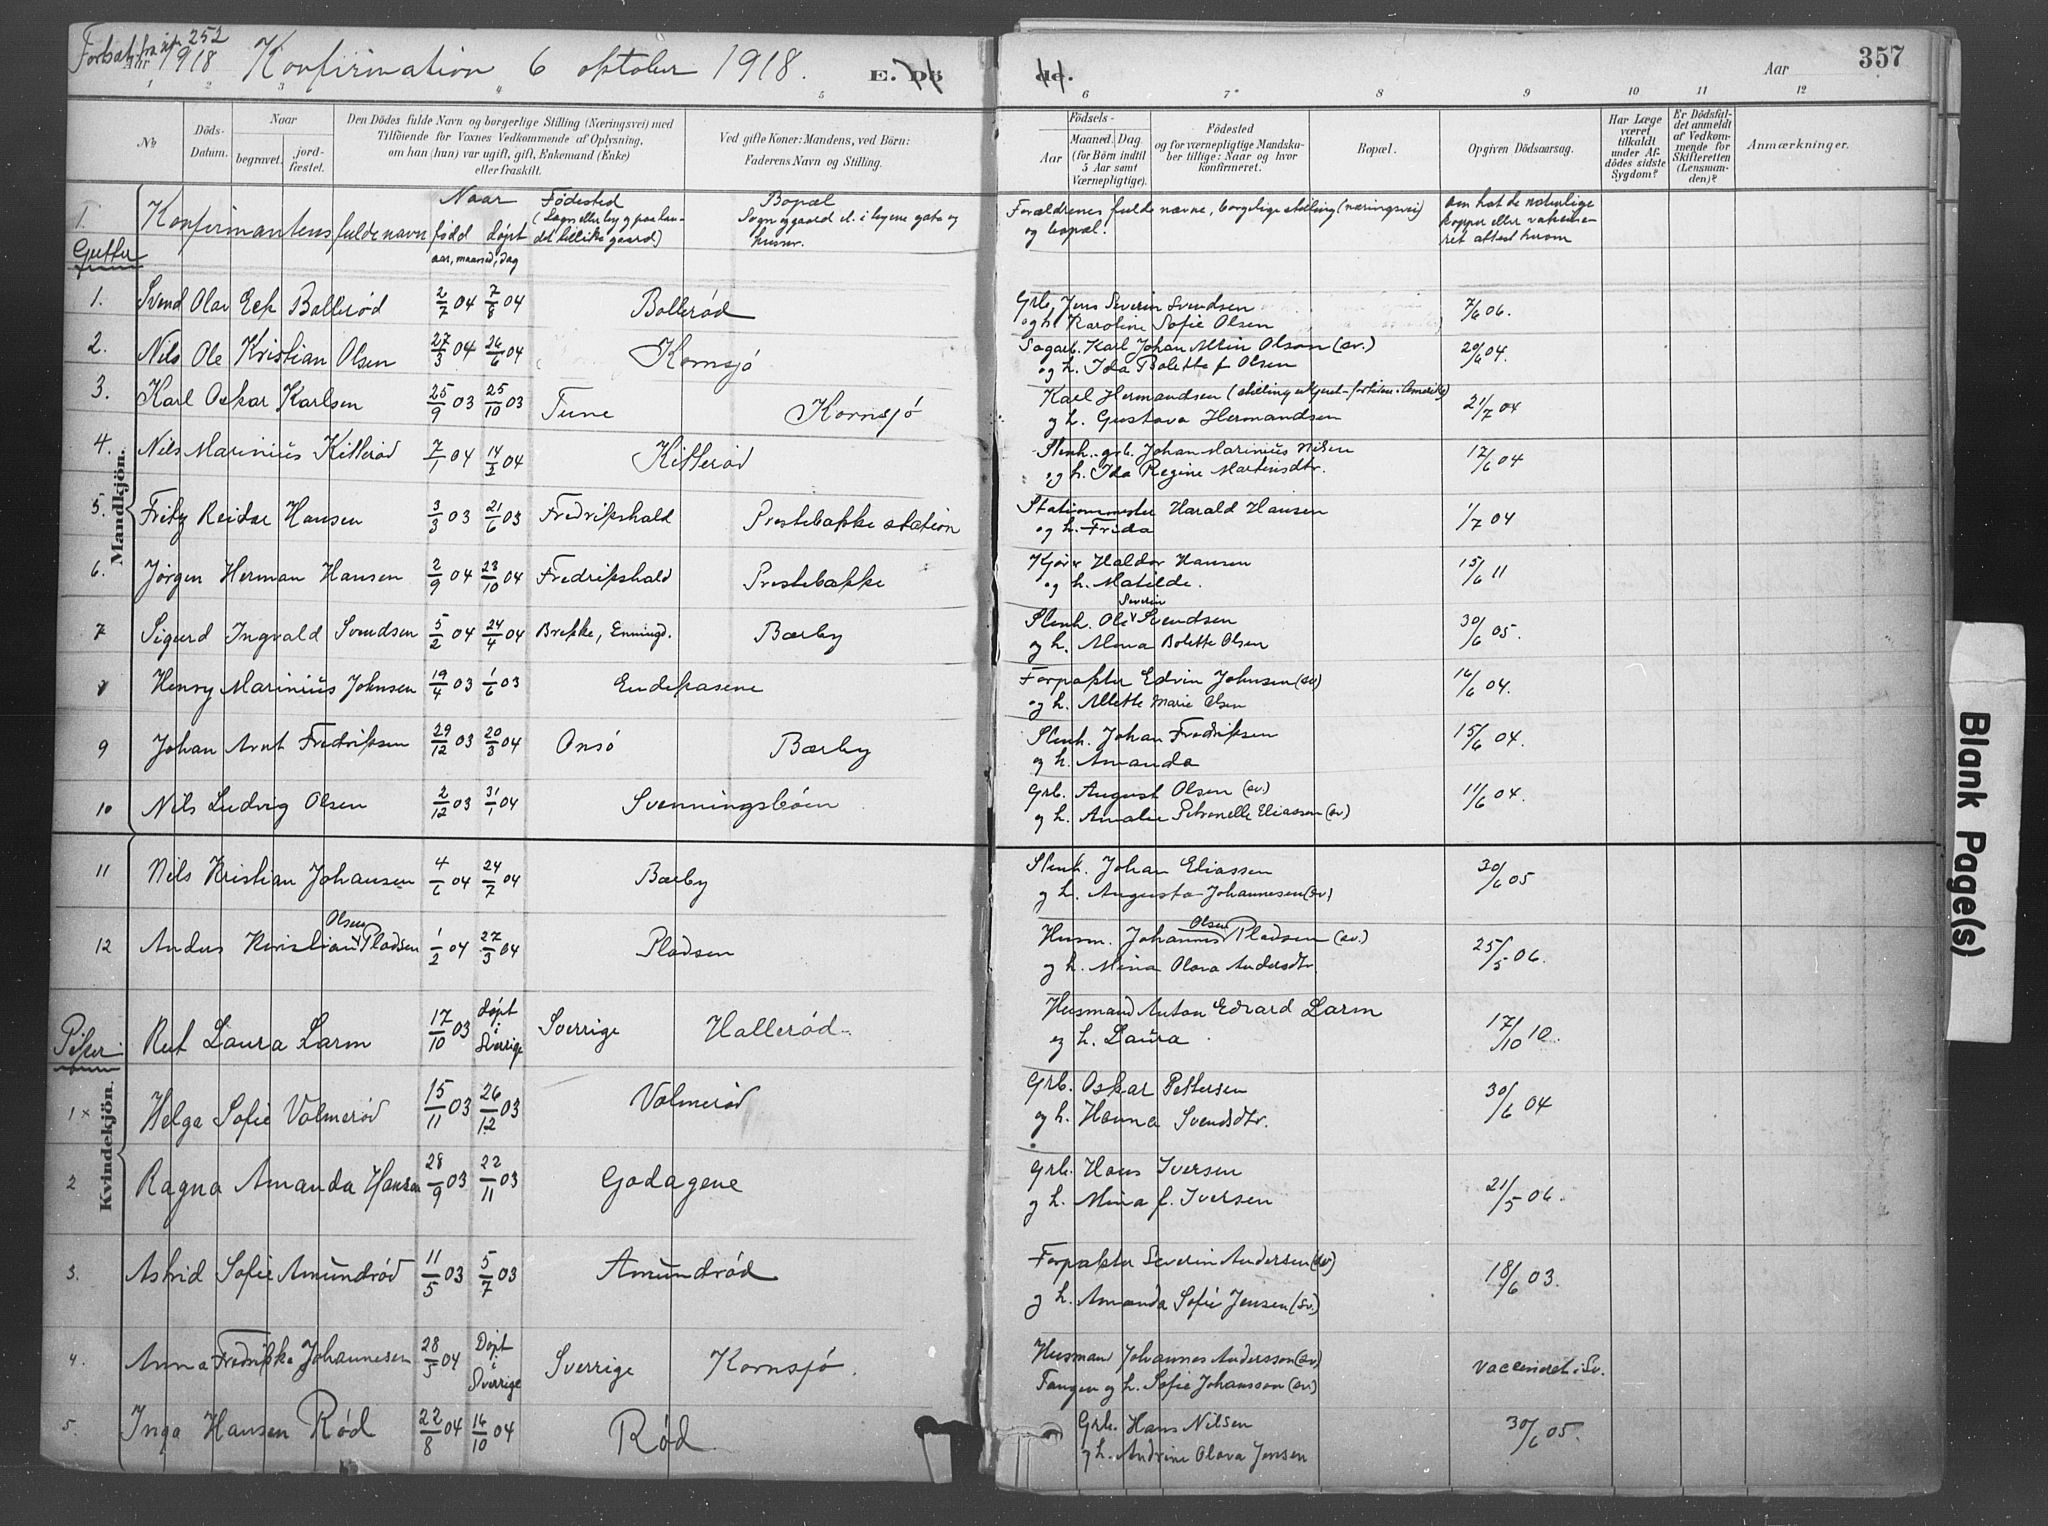 Fortsat fra side 252
Aar 1918 Konfirmation 6 oktober 1918. E. Dö
de. Aar 357
1 2 3 4 5
6 7* 8 9 10 11 12
№
Döds-
Datum.
Naar
begravet.
jord-
fæstet.
Den Dödes fulde Navn og borgerlige Stilling (Næringsvei) med
Tilföiende for Voxnes Vedkommende af Oplysning,
om han (hun) var ugift, gift, Enkemand (Enke)
eller fraskilt.
Ved gifte Koner: Mandens, ved Börn:
Faderens Navn og Stilling.
Födsels-
Aar
Maaned. Dag.
(for Börn indtil
5 Aar samt
Værnepligtige).
Födested
og for værnepligtige Mandska-
ber tillige: Naar og hvor
konfirmeret.
Bopæl.
Opgiven Dödsaarsag.
Har Læge
været
tilkaldt
under Af-
dödes sidste
Sygdom?
Er Dödsfal-
det anmeldt
af Vedkom-
mende for
Skifteretten
(Lensman-
den)?
Anmærkninger.
Konfirmantens fulde navn
Naar
född döpt
aar, maaned, dag
Födested
(Sogn eller by og paa lan-
det tillike gaard)
Bopæl
Sogn og gaard el. i byene gate og
husnr.
Forældrenes fulde navne, borgelige stilling (næringsvei)
og bopæl.
om hat de naturlige
kopper eller vakcine-
ret attest hvem
Gutter
Mandkjön.
1. Svend Olav Eek Bollerød 2/7 04 7/8 04 Bollerød Grb. Jens Severin Svendsen 7/6 06.
og h. Karoline Sofie Olsen
2. Nils Ole Kristian Olsen 27/3 04 26/6 04 Kornsjø Sagarb. Karl Johan Alvin Olsson (sv.) 20/6 04.
og h. Ida Bolette f Olsen
3. Karl Oskar Karlsen 25/9 03 25/10 03 Tune Kornsjø Karl Hermandsen (stilling ukjent - fortiden i Amerika) 21/7 04
og h. Gustava Hermandsen
4. Nils Marinius Kitterød 7/1 04 14/2 04 Kitterød Stenh. grb. Johan Marinius Nilsen 17/6 04
og h. Ida Regine Martinsdtr.
5. Fritz Reidar Hansen 3/3 03 21/6 03 Fredrikshald Prestebakke station Stationsmester Harald Hansen 1/7 04
og h. Frida
6. Jörgen Herman Hansen 2/9 04 23/10 04 Fredrikshald Prestebakke Kjører Haldor Hansen 15/6 11
og h. Matilde.
7 Sigurd Ingvald Svendsen 5/2 04 24/4 04 Brekke, Enningd. Bærby Stenh. Ole Severin Svendsen 30/6 05.
og h. Alma Bolette Olsen
8 Henry Marinius Johnsen 19/4 03 1/6 03 Endekasene Forpakter Edvin Johnsen (sv) 16/6 04.
og h. Allette Marie Olsen
9 Johan Arnt Fredriksen 29/12 03 20/3 04 Onsö Bærby Stenh. Johan Fredriksen 15/6 04.
og h. Amanda
10 Nils Ludvig Olsen 2/12 03 31/1 04 Svenningsbøen Grb. August Olsen (sv.) 11/6 04.
og h. Amalie Petronelle Eliassen (sv)
11 Nils Kristian Johansen 4/6 04 24/7 04 Bærby Stenh. Johan Eliassen 30/6 05
og h. Augusta Johannesen (sv)
12 Anders Kristian Olsen Pladsen 1/2 04 27/3 04 Pladsen Husm. Johannes Olsen Pladsen (sv.) 25/5 06.
og h. Mina Olava Andersdtr.
Piker
Kvindekjön.
Rut Laura Larm 17/10 03 Døpt i Sverrige Sverrige Hallerød Husmand Anton Edvard Larm 17/10 10.
og h. Laura
1 x Helga Sofie Volmerød 15/11 03 26/12 03 Volmerød Grb. Oskar Pettersen 30/6 04
og h. Hanna Svendsdtr.
2 Ragna Amanda Hansen 28/9 03 22/11 03 Godagene Grb. Hans Iversen 21/5 06.
og h. Mina f. Iversen
3. Astrid Sofie Amundrød 11/5 03 5/7 03 Amundrød Forpakter Severin Andersen (sv) 18/6 03.
og h. Amanda Sofie Jensen (sv.)
4. Anna Fredrikke Johannesen 28/5 04 Døpt i Sverrige Sverrige Kornsjø. Husmand Johannes Andersson (sv) vaccineret i Sv.
Tangen og h. Sofie Johansson (sv.)
5. Inga Hansen Rød 22/8 04 16/10 04 Rød Grb. Hans Nilsen 30/6 05.
og h. Andrine Olava Jensen
Blank Page(s)